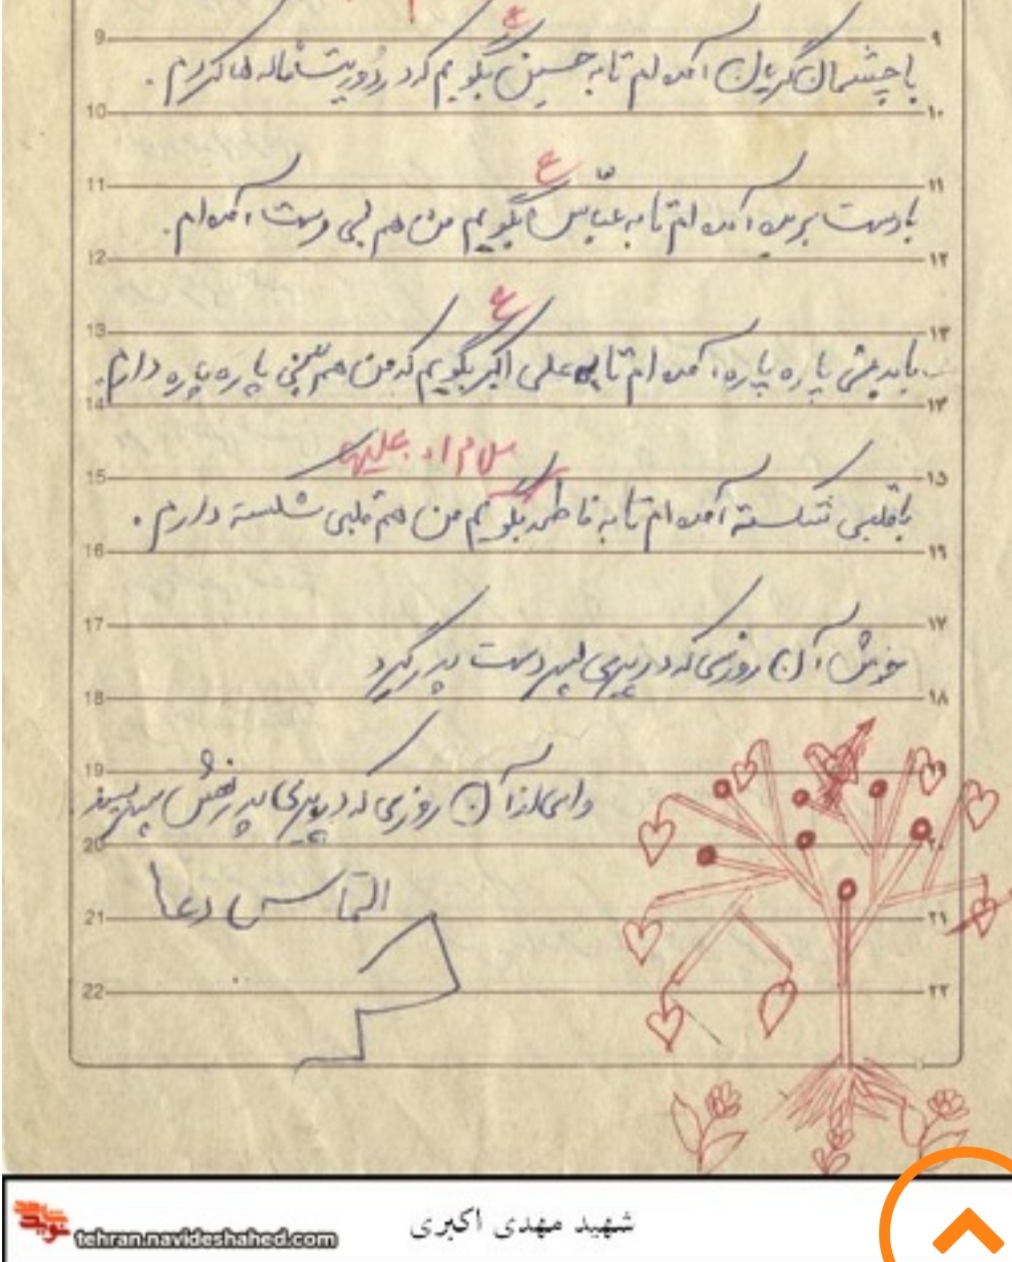 ۹ 9
ع
با چشمان گریان آمده ام تا به حسین بگویم که در دوریت ناله ها کردم.
۱۰ 10
۱۱ 11
ع
با دست بریده آمده ام تا به عباس بگویم من هم بی دست آمده ام.
۱۲ 12
۱۳ 13
ع
با بدنی پاره پاره آمده ام تا به علی اکبر بگویم که من هم پاره پاره دارم.
۱۴ 14
سلام ا... علیها
۱۵ 15
با قلبی شکسته آمده ام تا به فاطمه بگویم من هم قلبی شکسته دارم.
۱۶ 16
۱۷ 17
خوش آن روزی که در پیری پسر دست پدر گیرد
۱۸ 18
۱۹ 19
وای از آن روزی که در پیری پدر نعش پسر بیند
۲۰ 20
التماس دعا
۲۱ 21
۲۲ 22
نوید شاهد
tehran.navideshahed.com
شهید مهدی اکبری